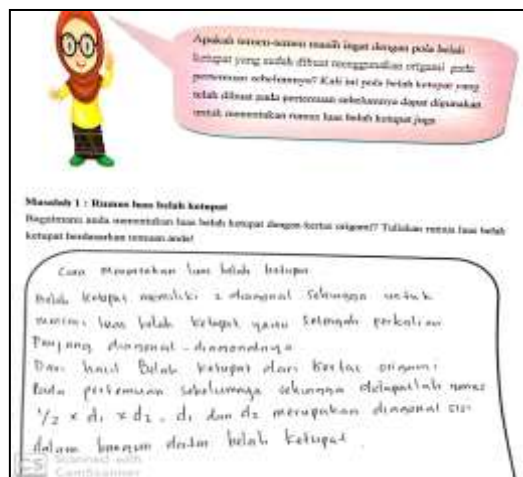 Apakah teman-teman masih ingat dengan pola belah
ketupat yang sudah dibuat menggunakan origami pada
pertemuan sebelumnya? Kali ini pola belah ketupat yang
telah dibuat pada pertemuan sebelumnya dapat digunakan
untuk menentukan rumus luas belah ketupat juga
Masalah 1 : Rumus luas belah ketupat
Bagaimana anda menentukan luas belah ketupat dengan kertas origami? Tuliskan rumus luas belah
ketupat berdasarkan temuan anda!
Cara luas belah ketupat
Belah ketupat memiliki 2 diagonal sehingga untuk
mencari luas belah ketupat yaitu setengah perkalian
Panjang diagonal - 
Dari hasil Belah ketupat dari kertas origami
Pada pertemuan sebelumnya sehingga didapatlah rumus
1/2 x d1 x d2. d1 dan d2 merupakan diagonal sisi
dalam bangun datar belah ketupat.
CS Scanned with
CamScanner